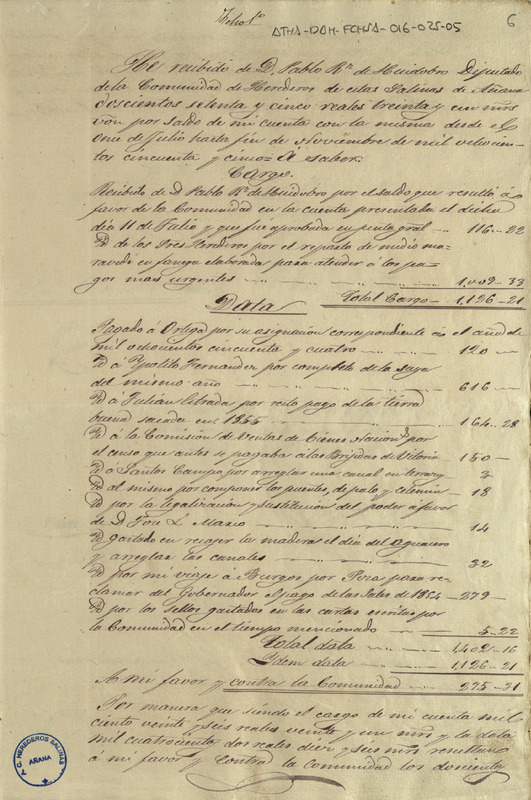 Folio 1º
6
ATHA-DAH-FCHSA-016-025-05
He recibido de D. Pablo Rz. de Huidobro Diputado
de la Comunidad de Herederos de estas Salinas de Añana
doscientos setenta y cinco reales treinta y un mrs
von por saldo de mi cuenta con la misma desde el
once de Julio hasta fin de Noviembre de mil ochocien-
tos cincuenta y cinco = A saber.
Cargo.
Recibido de D Pablo Rz. de Huidobro por el saldo que resultó á
favor de la Comunidad en la cuenta presentada el dicho
dia 11 de Julio y que fué aprobada en junta gral 116 - 22
Yd de los Sres Herederos por el reparto de medio ma-
ravedi en fanega elaborada para atender á los pa-
gos mas urgentes 1,009 - 33
Total Cargo 1,126 - 21
Data
Pagado á Ortiga por su asignacion correspondiente á el año de
mil ochocientos cincuenta y cuatro 120
Yd á Ypolito Fernandez por completo de la suya
del mismo año 616
Yd á Julian Librada por resto pago de la tierra
buena sacada en 1855 164 - 28
Yd á la Comision de Ventas de Bienes Nacion.s por
el censo que antes se pagaba á las Brijidas de Vitoria 150
Yd á Santos Campo por arreglar una canal en terrazo 3
Yd al mismo por componer los puentes, de palo y Celemin 18
Yd por la legalizacion y sustitucion del poder á favor
de D. José L. Marco 14
Yd gastado en recoger la madera el dia del aguacero
y arreglar las canales 32
Yd por mi viaje á Burgos por Poza para re-
clamar del Gobernador el pago de las Sales de 1854 279
Yd por los sellos gastados en las cartas escritas por
la Comunidad en el tiempo mencionado 5 - 22
Total data 1,402 - 16
Ydem data 1,126 - 21
A mi favor y contra la Comunidad 275 - 31
Por manera que siendo el cargo de mi cuenta mil
ciento veinte y seis reales veinte y un mrs y la data
mil cuatrocientos dos reales diez y seis mrs resultan
á mi favor y contra la comunidad los doscientos
A. C. HEREDEROS SALINAS
AÑANA